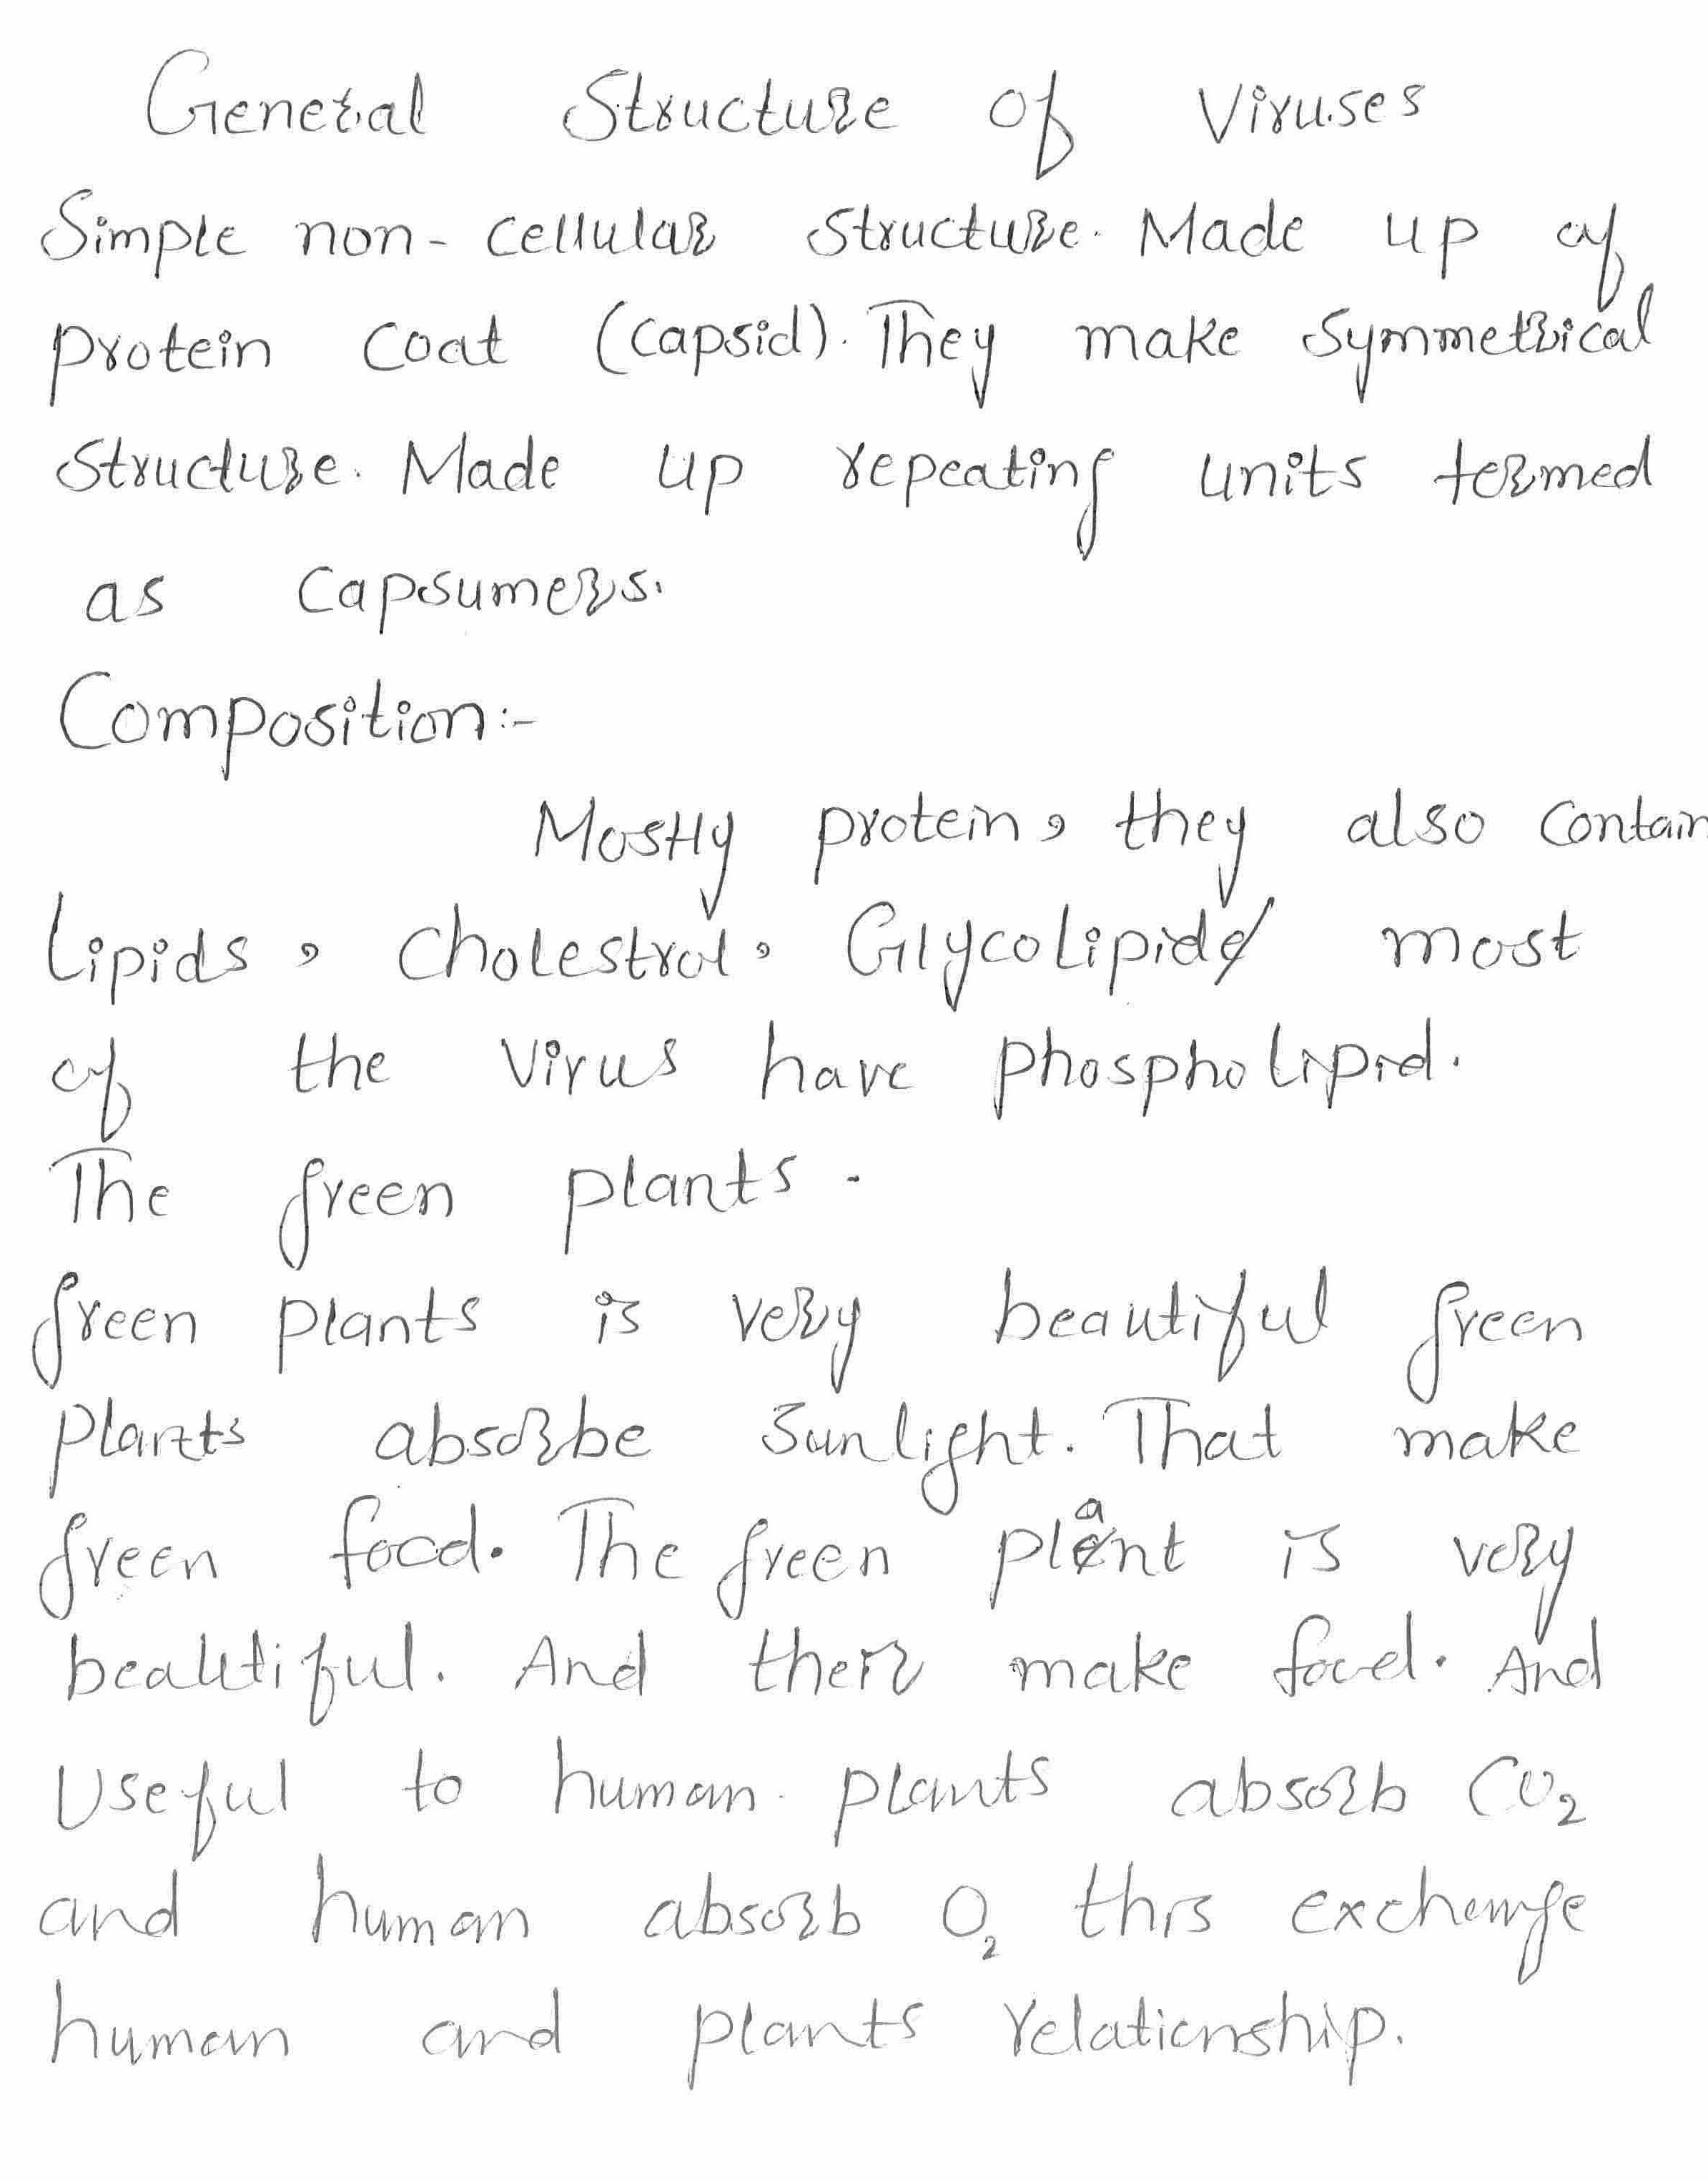 General Structure of Viruses
Simple non-cellular structure. Made up of
protein coat (capsid). They make symmetrical
structure. Made up repeating units termed
as Capsumers.
Composition:-
Mostly protein, they also contain
Lipids, Cholestrol, Glycolipid most
of the virus have phospholipid.
The green plants.
green plants is very beautiful green
plants absorbe sunlight. That make
green food. The green plant is very
beautiful. And their make food. And
Useful to human. plants absorb CO₂
and human absorb O₂ this exchange
human and plants relationship.